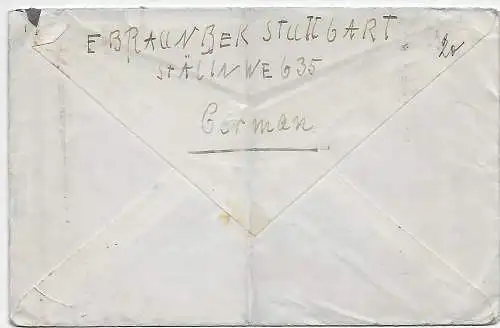 E BRAUNBEK STUTTGART
STÄLINWEG 35
20
German